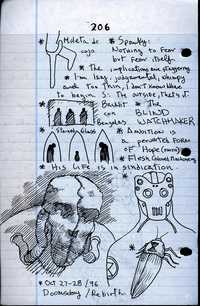 206
* Muleta de
cojo
* Spooky:
Nothing to Fear
but fear itself.
* The implications are staggering
* I'm lazy, judgemental, chimps
and too thin, I don't know where
to begin S: The outside, that's it.
* Bandit
con
Bengalas
* The
BLIND
WATCHMAKER
* Stained Glass
* Ambition is
a perverted form
of Hope
* Flesh Colored Machinery
* His life is in syndication.
* Oct 27-28/96
Doomsday/Rebirth